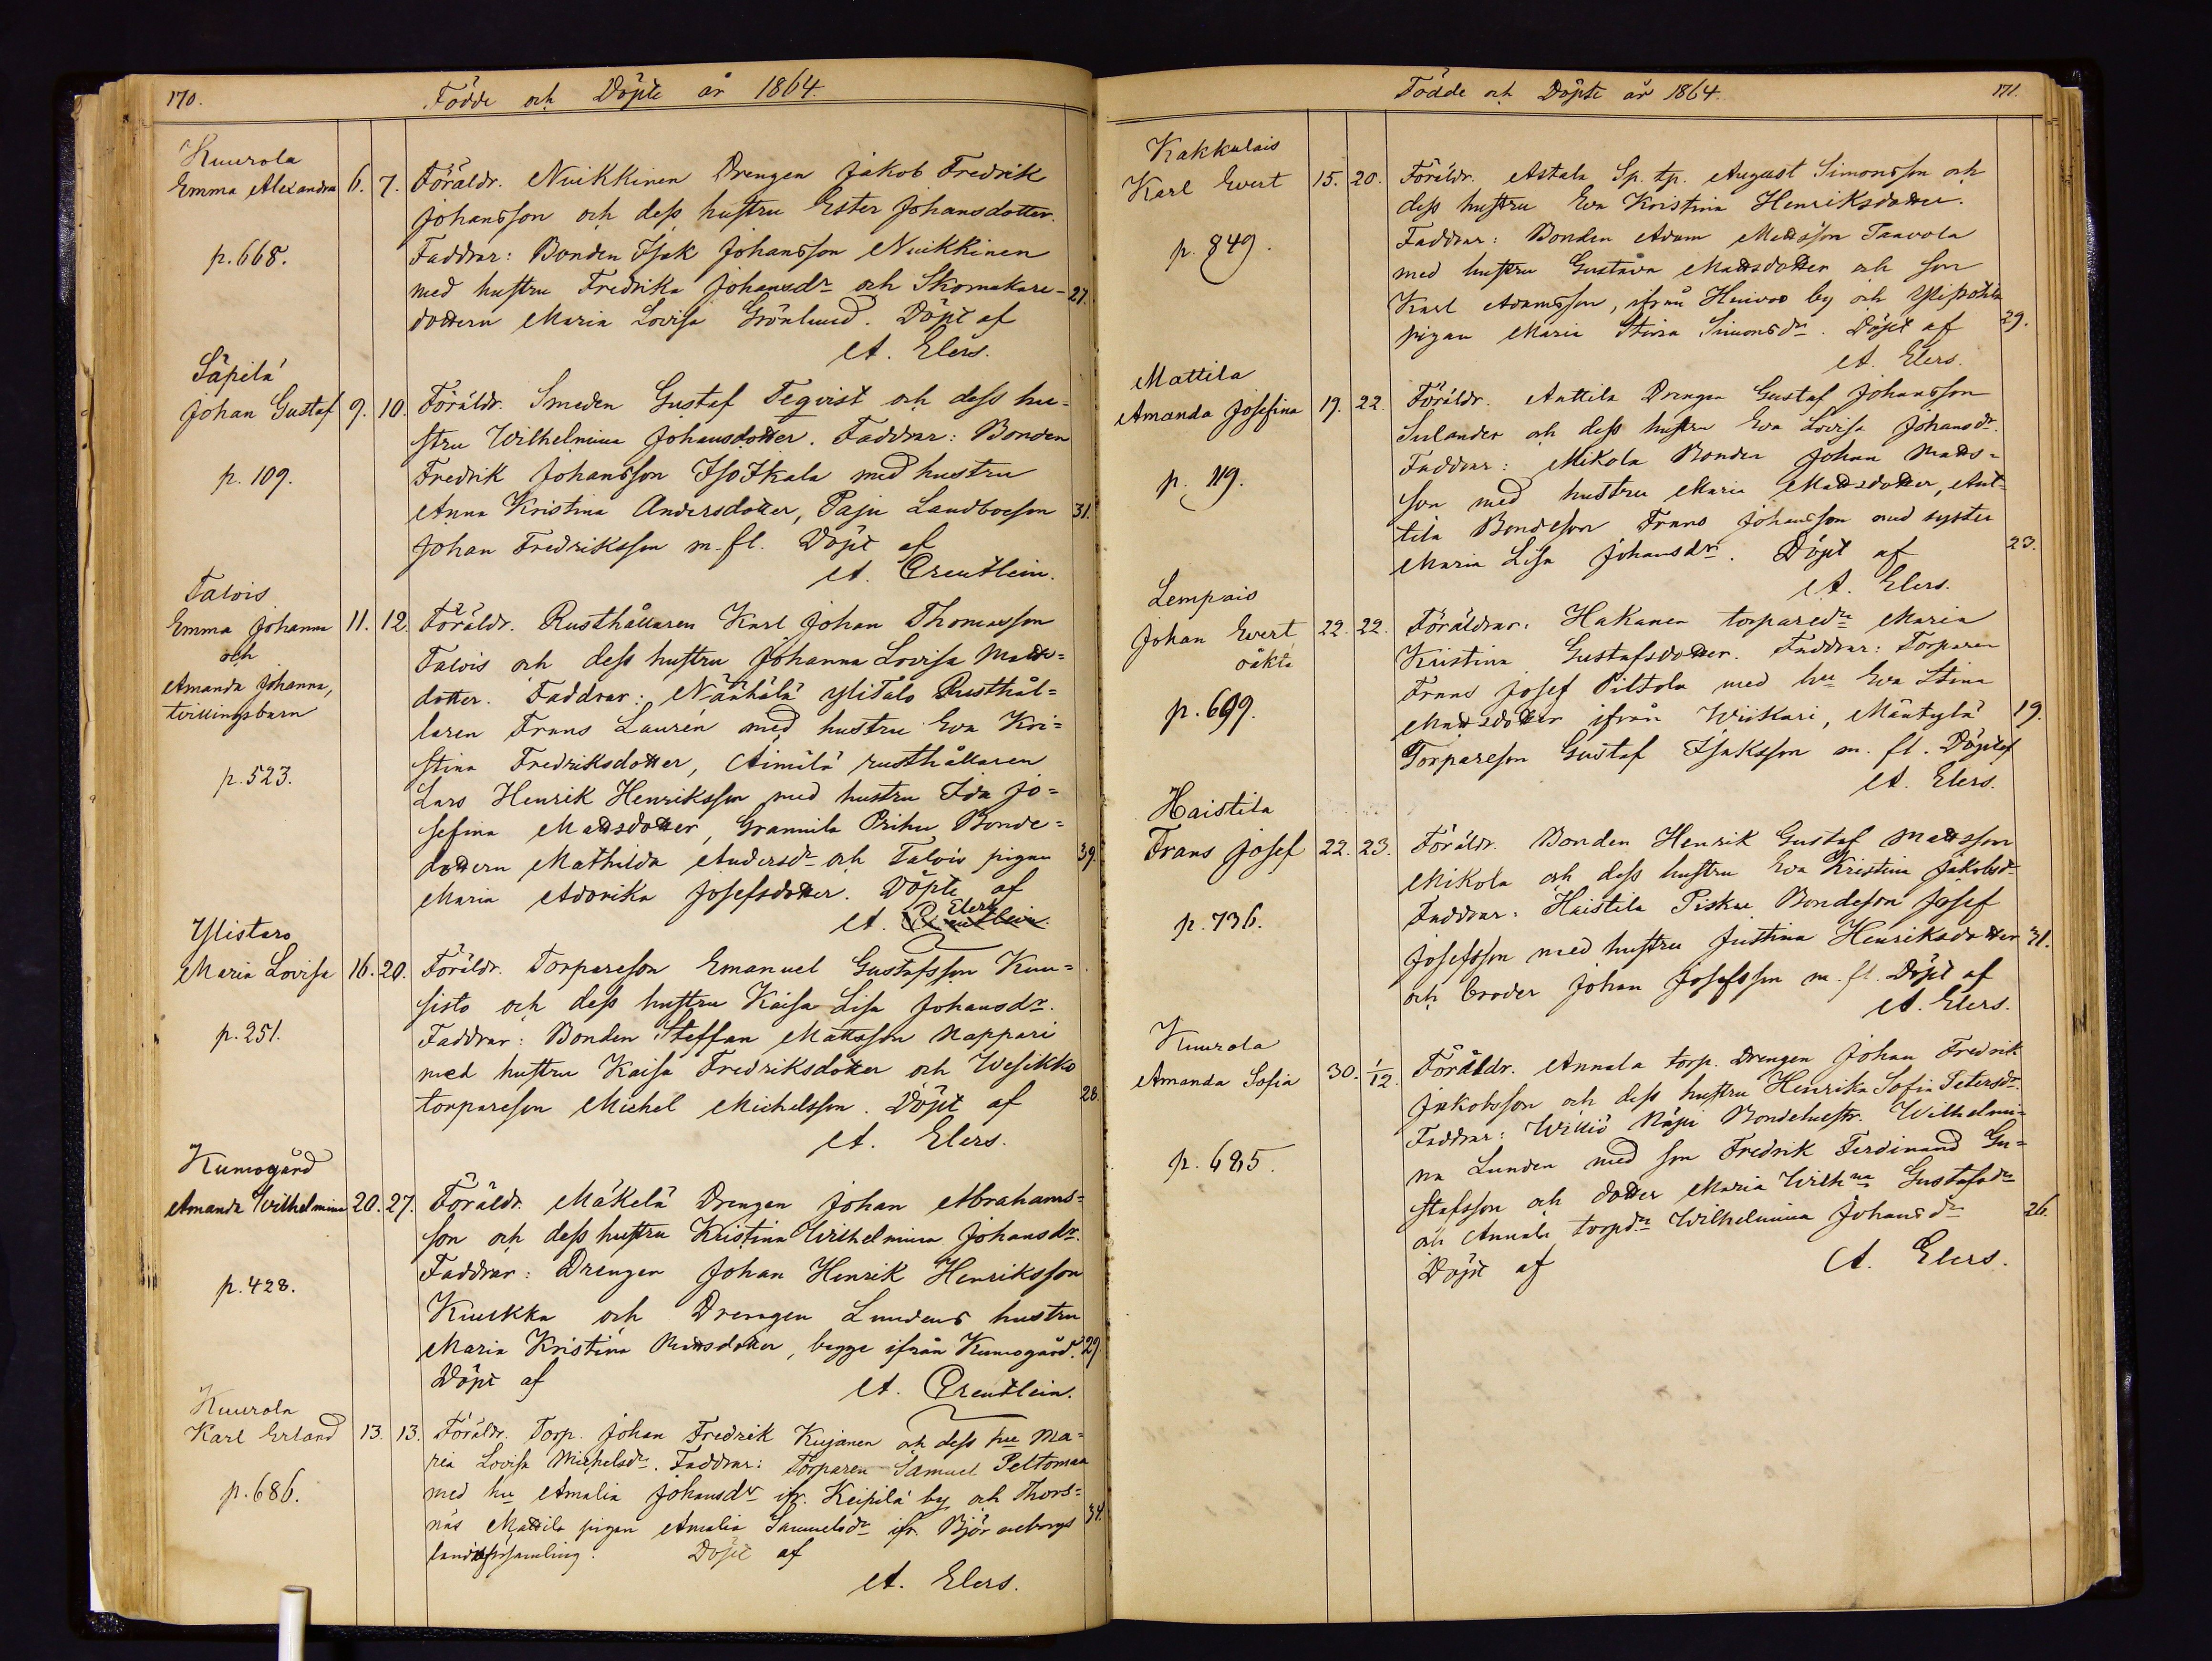 170.
Födde och Döpte år 1864.
Kuurola
Emma Alexandra 6. 7. Föräldr. Nuikkinen Drengen Jakob Fredrik
Johansson och dess hustru Ester Johansdotter.
p. 668. Faddrar: Bonden Isak Johansson Nuikkinen
med hustru Fredrika Johansdr och Skomakare- 27.
dottern Maria Lovisa Grönlund. Döpt af
A. Elers.
Säpilä
Johan Gustaf 9. 10. Föräldr. Smeden Gustaf Tegvist och dess hu-
stru Wilhelmina Johansdotter. Faddrar: Bonden
p. 109. Fredrik Johansson Iso Ikala med hustru
Anna Kristina Andersdotter, Paju Landboeson 31.
Johan Fredriksson m. fl. Döpt af
A. Creutlein.
Talois
Emma Johanna 11. 12. Föräldr. Rusthållaren Karl Johan Thomasson
och
Talois och dess hustru Johanna Lovisa Matts-
Amanda Johanna,
dotter. Faddrar: Näähälä Ylitalo Rusthål-
tvillingsbarn
laren Frans Lauren med hustru Eva Kri-
stina Fredriksdotter, Äimälä rusthållaren
p. 523.
Lars Henrik Henriksson med hustru Ida Jo-
sefina Mattsdotter, Grannila Prihu Bonde-
dottern Mathilda Andersdr och Talois pigan 39.
Maria Adovika Josefsdotter. Döpte af
A. Elers
Ylistaro
Maria Lovisa 16. 20. Föräldr. Torpareson Emanuel Gustafsson Kuu-
sisto och dess hustru Kaisa Lisa Johansdr.
p. 251. Faddrar: Bonden Steffan Mattsson Nappari
med hustru Kaisa Fredriksdotter och Wesikko
torpareson Michel Michelsson. Döpt af 28.
A. Elers.
Kumogård
Amanda Wilhelmina 20. 27. Föräldr. Mäkelä Drengen Johan Abrahams-
son och dess hustru Kristina Wilhelmina Johansdr.
p. 428. Faddrar: Drengen Johan Henrik Henriksson
Kiukka och Drengen Lundens hustru
Maria Kristina Mattsdotter, begge ifrån Kumogård. 29.
Döpt af
A. Creutlein.
Kuurola
Karl Erland 13. 13. Föräldr. Torp. Johan Fredrik Kujanen och dess hu Ma-
ria Lovisa Michelsdr. Faddrar: Torparen Samuel Peltomaa
p. 686. med hu Amalia Johansdr ifr. Keipilä by och Thors-
näs Mattila pigan Amalia Samuelsdr ifr. Björneborgs 34.
landsförsamling. Döpt af
A. Elers.
Födde och Döpte år 1864.
171.
Kakkulais
Karl Evert 15. 20. Föräldr. Astala Sp. tp. August Simonsson och
dess hustru Eva Kristina Henriksdotter.
p. 849. Faddrar: Bonden Adam Mattsson Taavola
med hustru Gustava Mattsdotter och son
Karl Adamsson, ifrån Huivoo by och
pigan Maria Stina Simonsdr. Döpt af 29.
A. Elers.
Mattila
Amanda Josefina 19. 22. Föräldr. Anttila Drengen Gustaf Johansson
Sulander och dess hustru Eva Lovisa Johansdr.
p. 119. Faddrar: Mikola Bonden Johan Matts-
son med hustru Maria Mattsdotter, Ant-
tila Bondeson Frans Johansson med syster
Maria Lisa Johansdr. Döpt af 23.
A. Elers.
Lempais
Johan Evert 22. 22. Föräldrar: Hakanen torparedr Maria
oäkta
Kristina Gustafsdotter. Faddrar: Torparen
p. 699. Frans Josef Piltola med hu Eva Stina
Mattsdotter ifrån Wiikari, Mäntylä 19.
Torpareson Gustaf Isaksson m. fl. Döpt af
A. Elers.
Haistila
Frans Josef 22. 23. Föräldr. Bonden Henrik Gustaf Mattsson
Mikola och dess hustru Eva Kristina Jakobsdr
p. 736. Faddrar: Haistila Piskue Bondeson Josef
Josefsson med hustru Justina Henriksdotter 31.
och broder Johan Josefsson m. fl. Döpt af
A. Elers.
Kuurola
Amanda Sofia 30. 1/12. Föräldr. Annala torp. Drengen Johan Fredrik
Jakobsson och dess hustru Henrika Sofia Petersdr.
p. 685. Faddrar: Williö Näpi Bondehustr. Wilhelmi-
na Lunden med son Fredrik Ferdinand Gu-
stafsson och dotter Maria Wilhna Gustafsdr
och Annala torpdr Wilhelmina Johansdr 26.
Döpt af A. Elers.